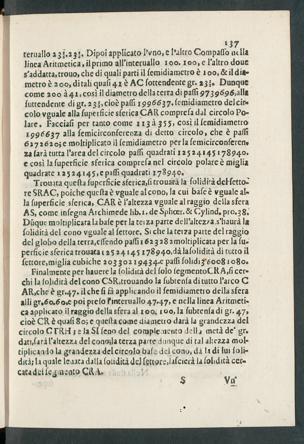 137
teruallo 23⅓. 23⅓. Dipoi applicato l'vno, e l'altro Compasso nella
linea Aritmetica, il primo all'interuallo 100. 100, e l'altro doue
s'addatta, trouo, che di quali parti il semidiametro è 100, & il dia-
metro è 200, di tali quasi 42 è AC sottendente gr. 23⅓. Dunque
come 200 à 41, così il diametro della terra di passi 9739696, alla
suttendente di gr. 23⅓, cioè passi 1996637, semidiametro del cir-
colo vguale alla superficie sferica CAR compresa dal circolo Po-
lare. Facciasi per tanto come 113 à 355, così il semidiametro
1996637 alla semicirconferenza di detto circolo, che è passi
6272620; e moltiplicato il semidiametro per la semicirconferen-
za sarà tutta l'area del circolo passi quadrati 12524145178940.
e così la superficie sferica compresa nel circolo polare è miglia
quadrate 12524145, e passi quadrati 178940.
Trouata questa superficie sferica, si trouarà la solidità del setto-
re SRAC, poiche questa è vguale al cono, la cui base è vguale al-
la superficie sferica, CAR è l'altezza vguale al raggio della sfera
AS, come insegna Archimede lib. 1. de Sphær. & Cylind. pro. 38.
Dũque moltiplicata la base per la terza parte dell'altezza s'haurà la
solidità del cono vguale al settore. Si che la terza parte del raggio
del globo della terra, essendo passi 1623282 moltiplicata per la su-
perficie sferica trouata 12524145178940. dà la solidità di tutto il
settore, miglia cubiche 20330219434. passi solidi 500081080.
Finalmente per hauere la solidità del solo segmento CRA, si cer-
chi la solidità del cono CSR, trouando la subtensa di tutto l'arco C
AR, che è gr. 47, il che si fà applicando il semidiametro della sfera
alli gr. 60. 60. poi preso l'interuallo 47. 47, e nella linea Aritmeti-
ca applicato il raggio della sfera al 100, 100, la subtensa di gr. 47,
cioè CR è quasi 80; e questa come diametro darà la grandezza del
circolo CTRH; e la SI seno del complemento della metà de' gr.
dati, sarà l'altezza del cono; la terza parte dunque di tal altezza mol-
tiplicando la grandezza del circolo base del cono, dà la di lui soli-
dità; la quale leuata dalla solidità del settore, lascierà la solidità cer-
cata del segmento CRA.
S Vn'